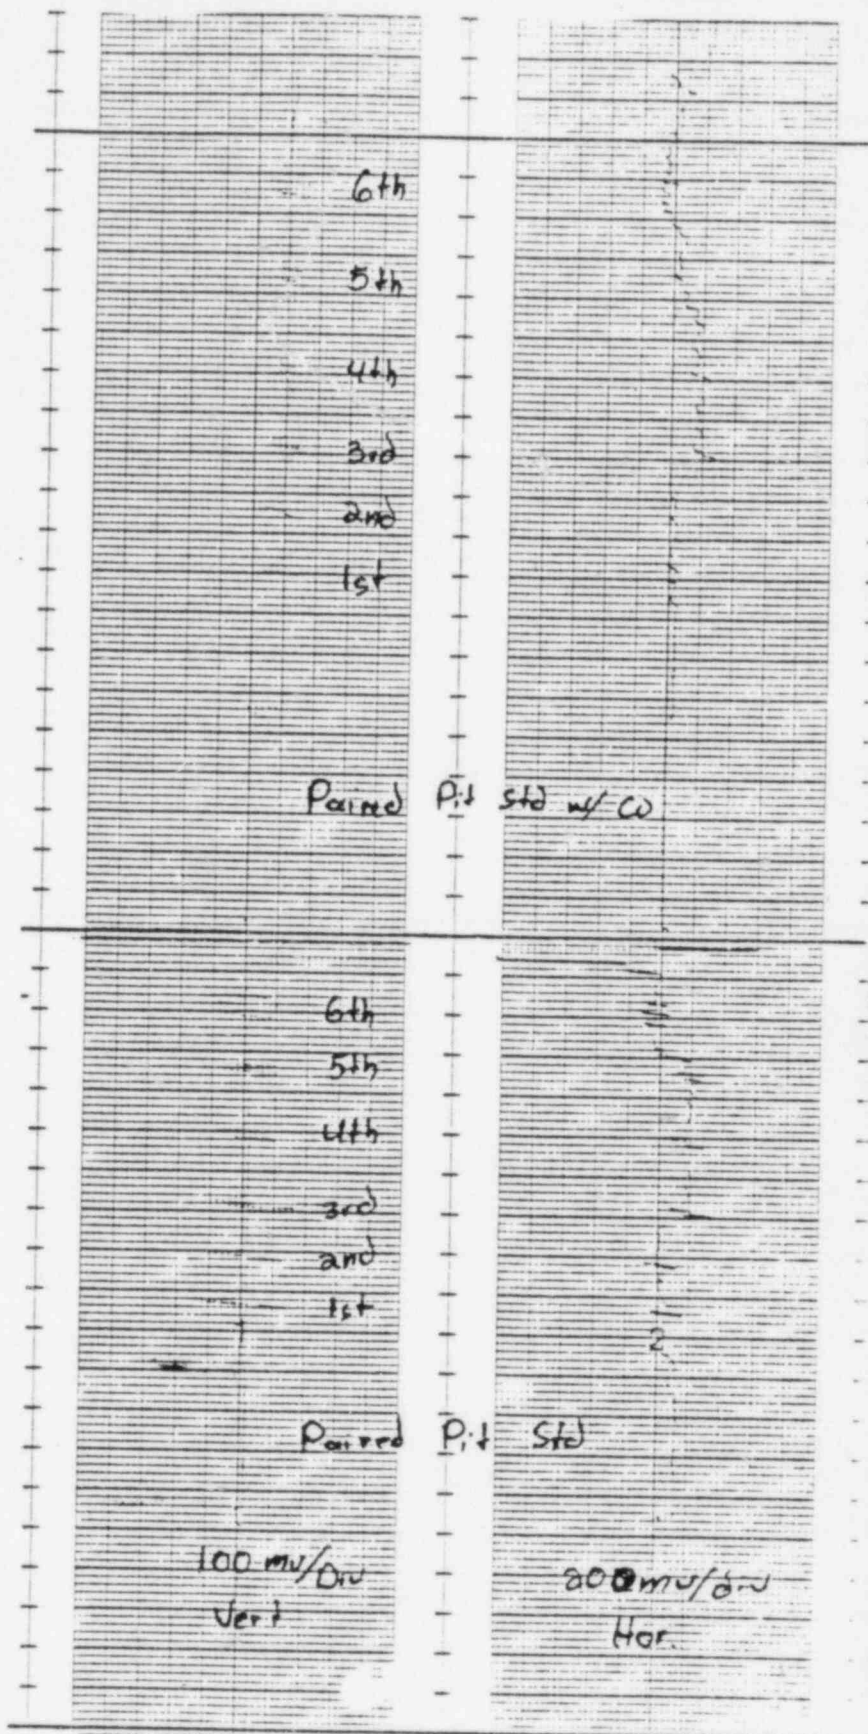 6th
5th
4th
3rd
2nd
1st
Paired Pit Std w/ CW
6th
5th
4th
3rd
2nd
1st
Paired Pit Std
100 mv/Div
Vert
200mv/div
Hor.